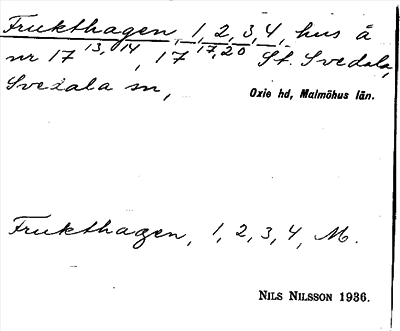 Frukthagen, 1, 2, 3, 4, hus å
nr 17 13, 14, 17 17, 20 St. Svedala,
Svedala sn,
Oxie hd, Malmöhus län.
Frukthagen, 1, 2, 3, 4, M.
NILS NILSSON 1936.